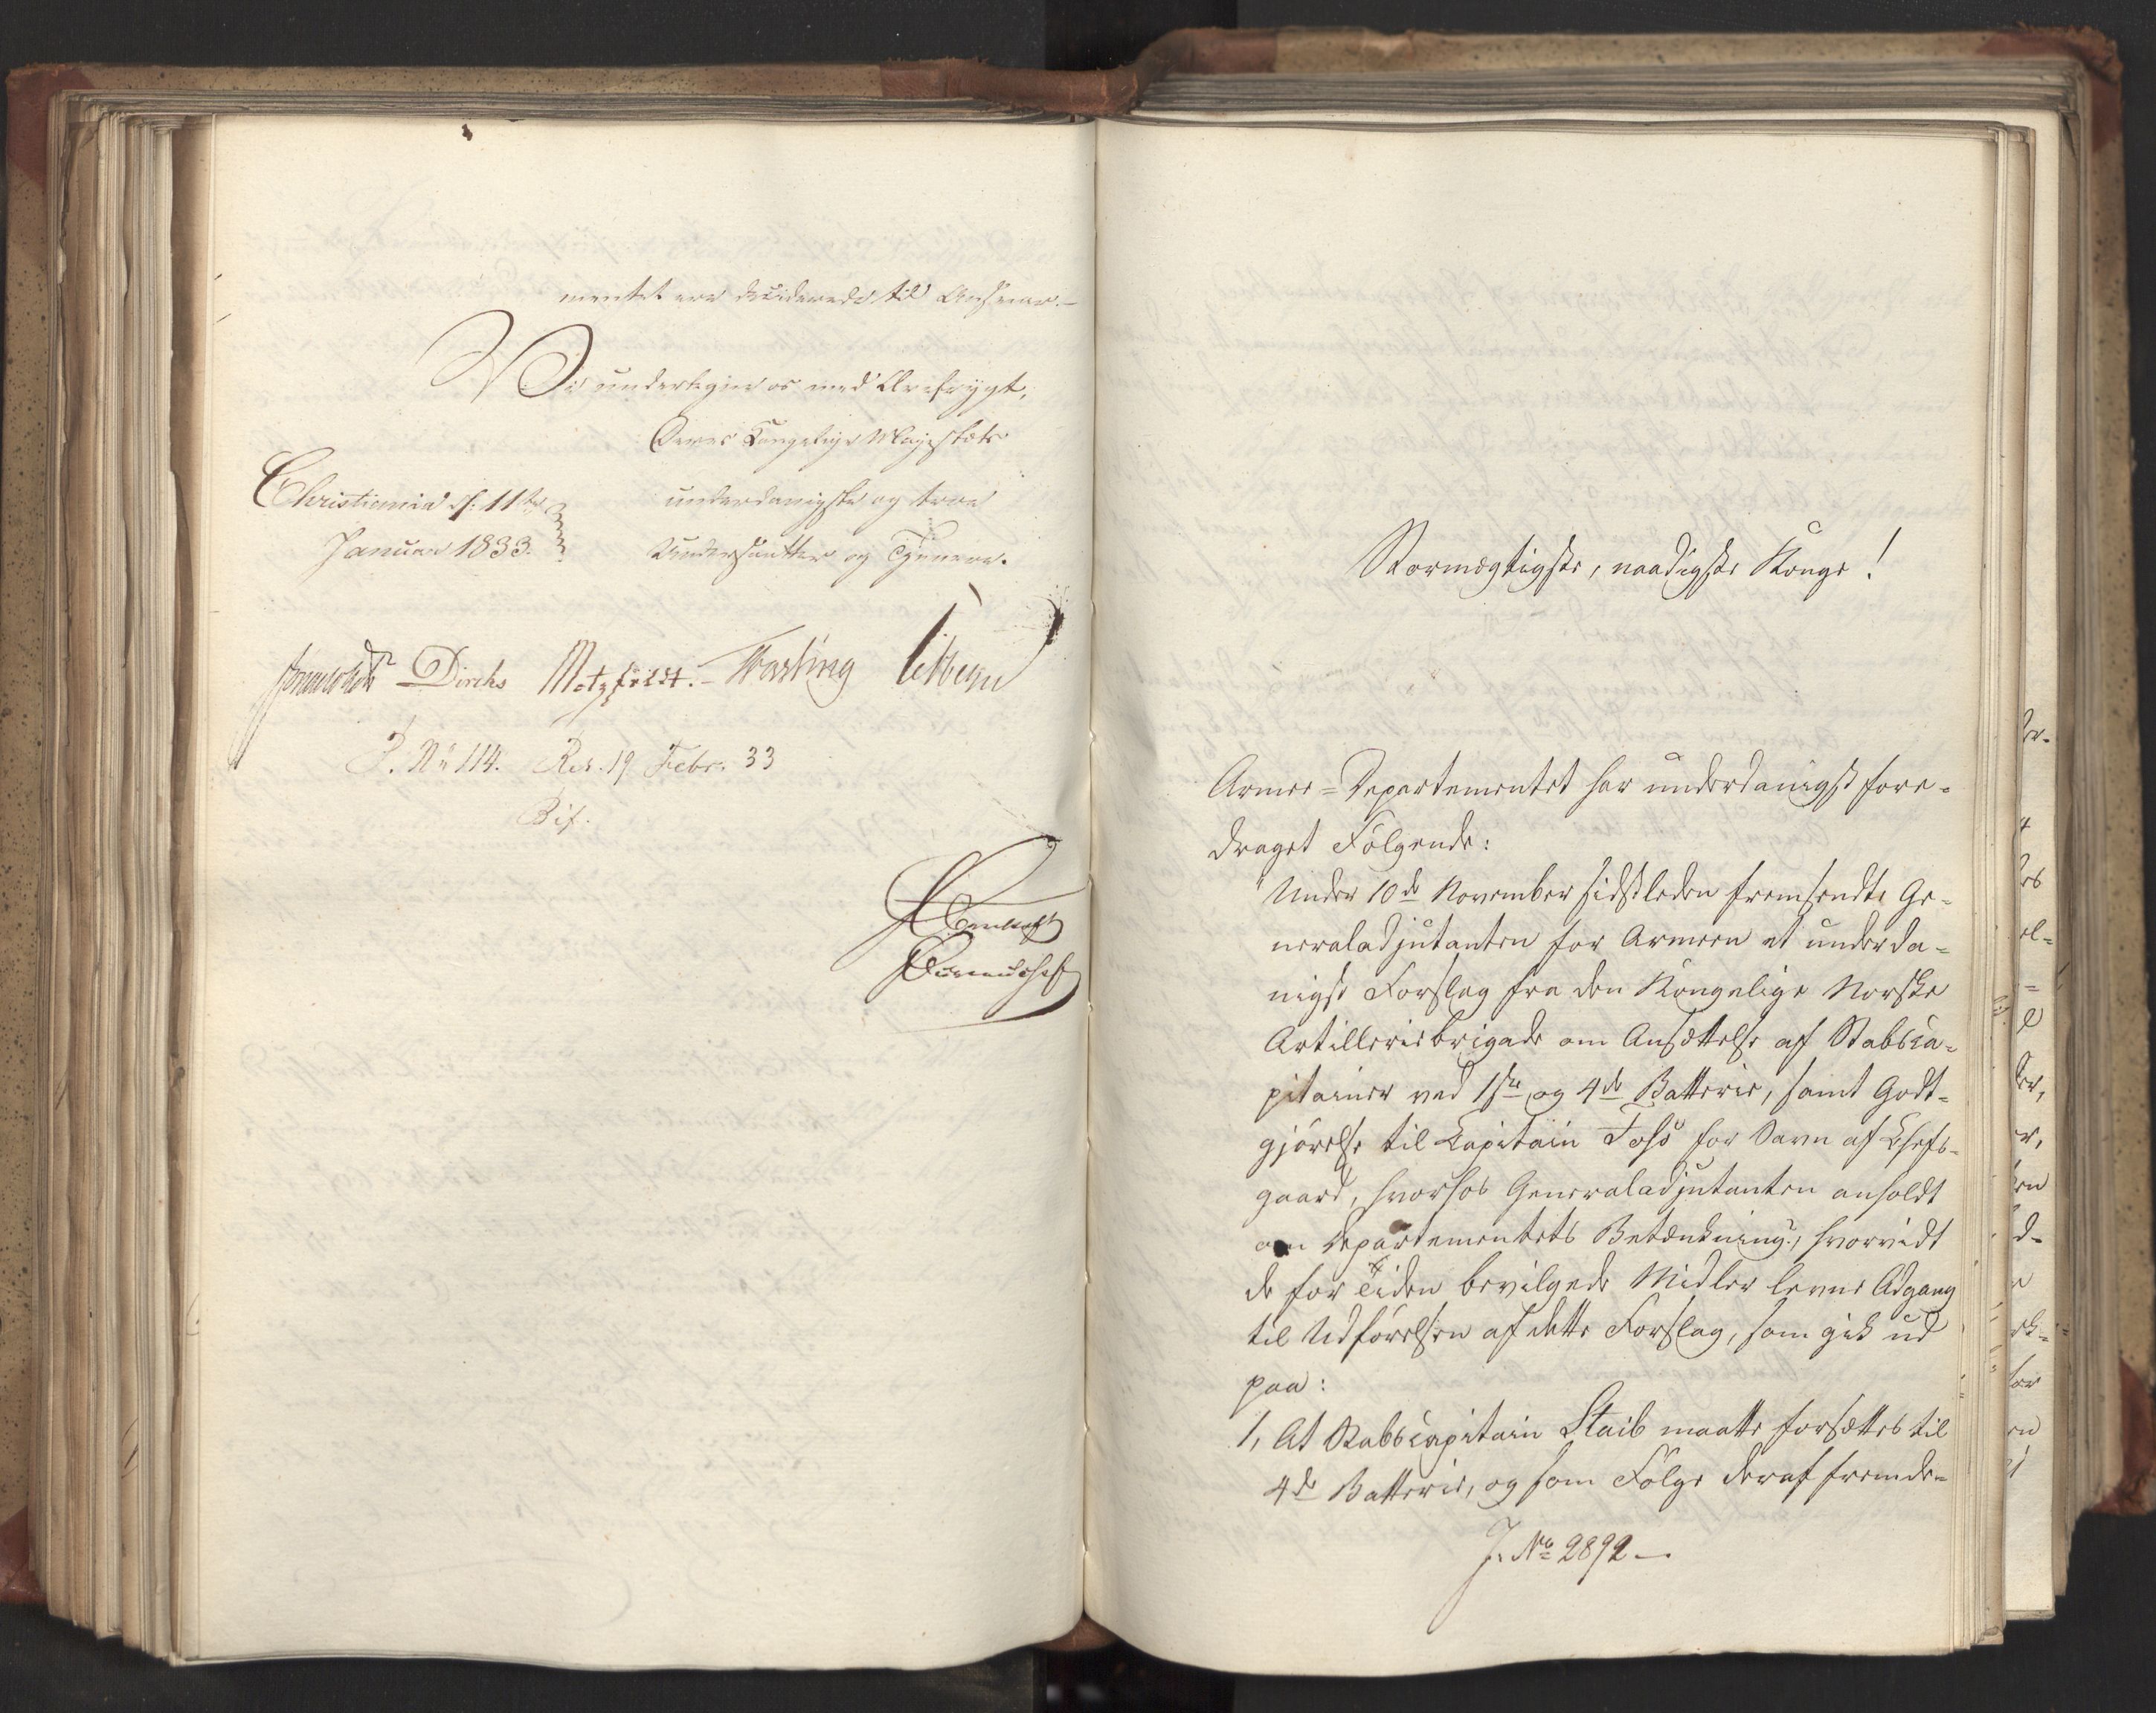 mentet ere deciderede til Ansvar.-
Vi undertegne os med Ærefrygt,
Deres Kongelige Majestæts
Christiania d: 11te
Januar 1833.
underdanigste og troe
Undersåtter og Tjenere.
Diriks Motzfeldt. Fasting
J. No 114. Res. 19 Febr. 33
Bif.
Stormægtigste, naadigste Konge!
Armee-Departementet har underdanigst fore-
draget Følgende:
"Under 10de November sidstleden fremsendte Ge-
neraladjutanten for Armeen et underda-
nigst Forslag fra den Kongelige Norske
Artilleriebrigade om Ansættelse af Stabsca-
pitainer ved 1ste og 4de Batterie, samt Godt-
gjørelse til Capitain Foss for Savn af Chefs-
gaard, hvorhos Generaladjutanten anholdt
om Departementets Betænkning, hvorvidt
de for Tiden bevilgede Midler levne Adgang
til Udførelsen af dette Forslag, som gik ud
paa:
1, At Stabscapitain Staib maatte forsættes til
4de Batterie, og som Følge deraf fremde-
J. No 2892 -